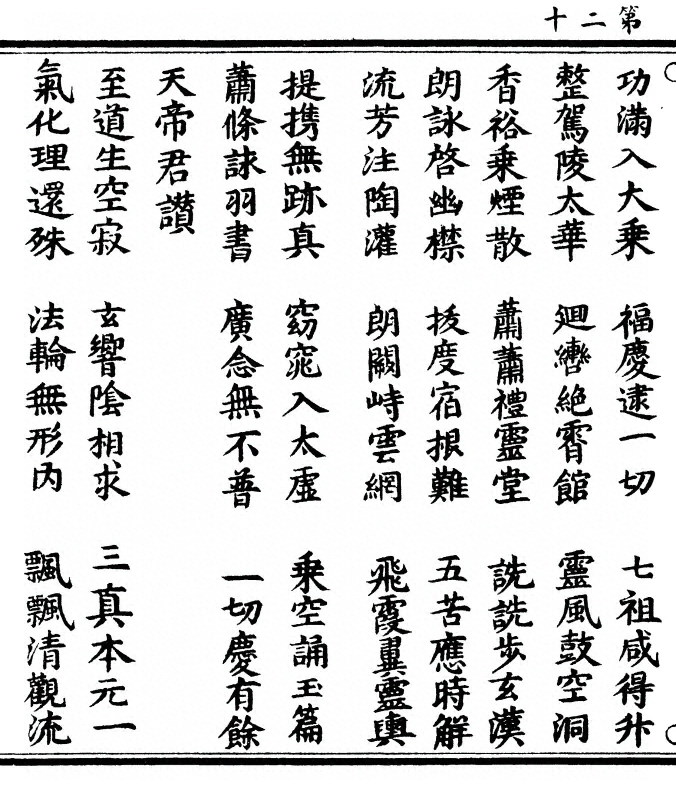 第二十
功滿入大乗　福慶逮一切　七祖咸得升
整駕陵太華　迴轡絶霄館　靈風鼓空洞
香裕乗煙散　蕭蕭禮靈堂　詵詵步玄漢
朗詠啓幽襟　拔度宿根難　五苦應時解
流芳注陶灌　朗闕峙雲網　飛霞翼靈輿
提携無跡真　窈窕入太虛　乗空誦玉篇
蕭條詠羽書　廣念無不普　一切慶有餘
天帝君讃
至道生空寂　玄響陰相求　三真本元一
氣化理還殊　法輪無形內　飄飄清觀流